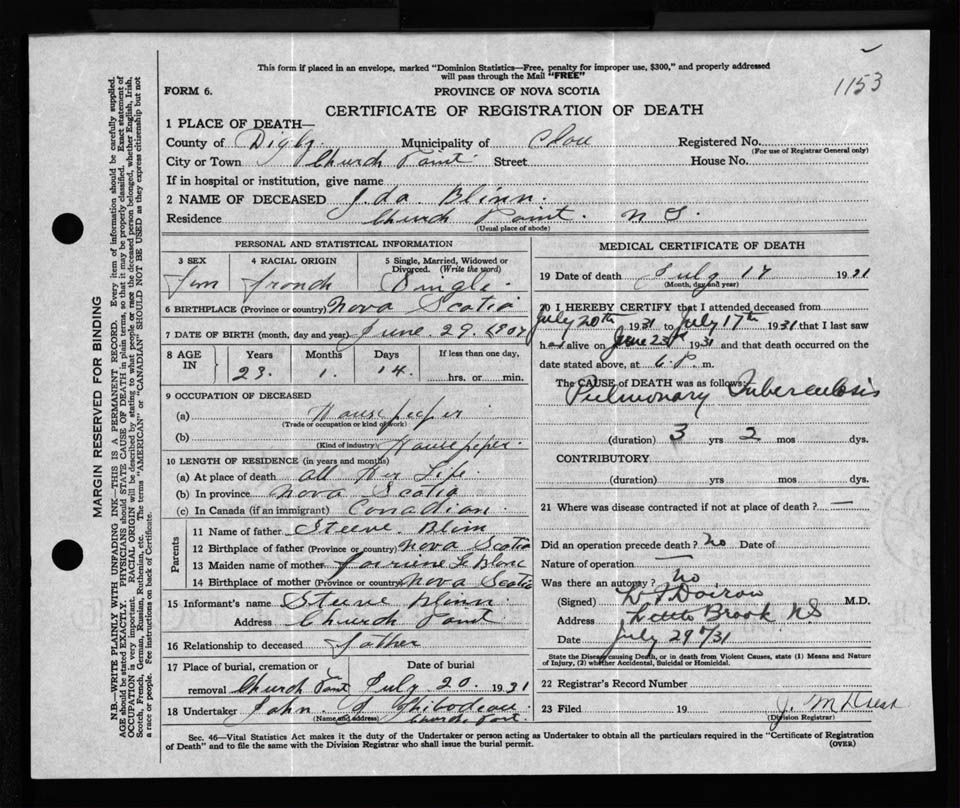 This form if placed in an envelope, marked "Dominion Statistics—Free, penalty for improper use, $300," and properly addressed
will pass through the Mail "FREE"
1153
FORM 6.
PROVINCE OF NOVA SCOTIA
CERTIFICATE OF REGISTRATION OF DEATH
1 PLACE OF DEATH—
County of Digby Municipality of Clare Registered No.
(For use of Registrar General only)
City or Town Church Point Street House No.
If in hospital or institution, give name
2 NAME OF DECEASED Ida Blinn.
Residence Church Point. N S.
(Usual place of abode)
PERSONAL AND STATISTICAL INFORMATION
3 SEX 4 RACIAL ORIGIN 5 Single, Married, Widowed or
Divorced. (Write the word)
Fem French Single
6 BIRTHPLACE (Province or country) Nova Scotia
7 DATE OF BIRTH (month, day and year) June. 29.
8 AGE IN Years Months Days If less than one day,
23. 1. 14. hrs. or min.
9 OCCUPATION OF DECEASED
(a)
(Trade or occupation or kind of work)
(b)
(Kind of industry)
10 LENGTH OF RESIDENCE (in years and months)
(a) At place of death all Her Life.
(b) In province Nova Scotia
(c) In Canada (if an immigrant) Canadian.
Parents
11 Name of father Steeve Blinn
12 Birthplace of father (Province or country) Nova Scotia
13 Maiden name of mother Le Blanc
14 Birthplace of mother (Province or country) Nova Scotia
15 Informant's name Steeve Blinn
Address Church Point
16 Relationship to deceased father
17 Place of burial, cremation or Date of burial
removal Church Point July 20. 1931
18 Undertaker John Thibodeau
(Name and address) Church Point.
MEDICAL CERTIFICATE OF DEATH
19 Date of death July 17 1931
(Month, day and year)
20 I HEREBY CERTIFY that I attended deceased from
July 20th 1931 to July 17th 1931 that I last saw
h alive on June 23rd 1931 and that death occurred on the
date stated above, at 6 P. m.
The CAUSE of DEATH was as follows:
Pulmonary Tuberculosis
(duration) 3 yrs 2 mos dys.
CONTRIBUTORY
(duration) yrs. mos. dys.
21 Where was disease contracted if not at place of death? —
Did an operation precede death? no Date of
Nature of operation —
Was there an autopsy? no
(Signed) Doiron M.D.
Address Little Brook NS
Date July 29th/31
State the Disease causing Death, or in death from Violent Causes, state (1) Means and Nature
of Injury, (2) whether Accidental, Suicidal or Homicidal.
22 Registrar's Record Number
23 Filed 19 J. M
(Division Registrar)
Sec. 46—Vital Statistics Act makes it the duty of the Undertaker or person acting as Undertaker to obtain all the particulars required in the "Certificate of Registration
of Death" and to file the same with the Division Registrar who shall issue the burial permit. (OVER)
MARGIN RESERVED FOR BINDING
N.B.—WRITE PLAINLY WITH UNFADING INK—THIS IS A PERMANENT RECORD. Every item of information should be carefully supplied.
AGE should be stated EXACTLY. PHYSICIANS should STATE CAUSE OF DEATH in plain terms, so that it may be properly classified. Exact statement of
OCCUPATION is very important. RACIAL ORIGIN will be described by stating to what people or race the deceased person belonged, whether English, Irish,
Scotch, French, German, Russian, Ruthenian, etc. The terms "AMERICAN" or "CANADIAN" SHOULD NOT BE USED as they express citizenship but not
a race or people. See instructions on back of Certificate.